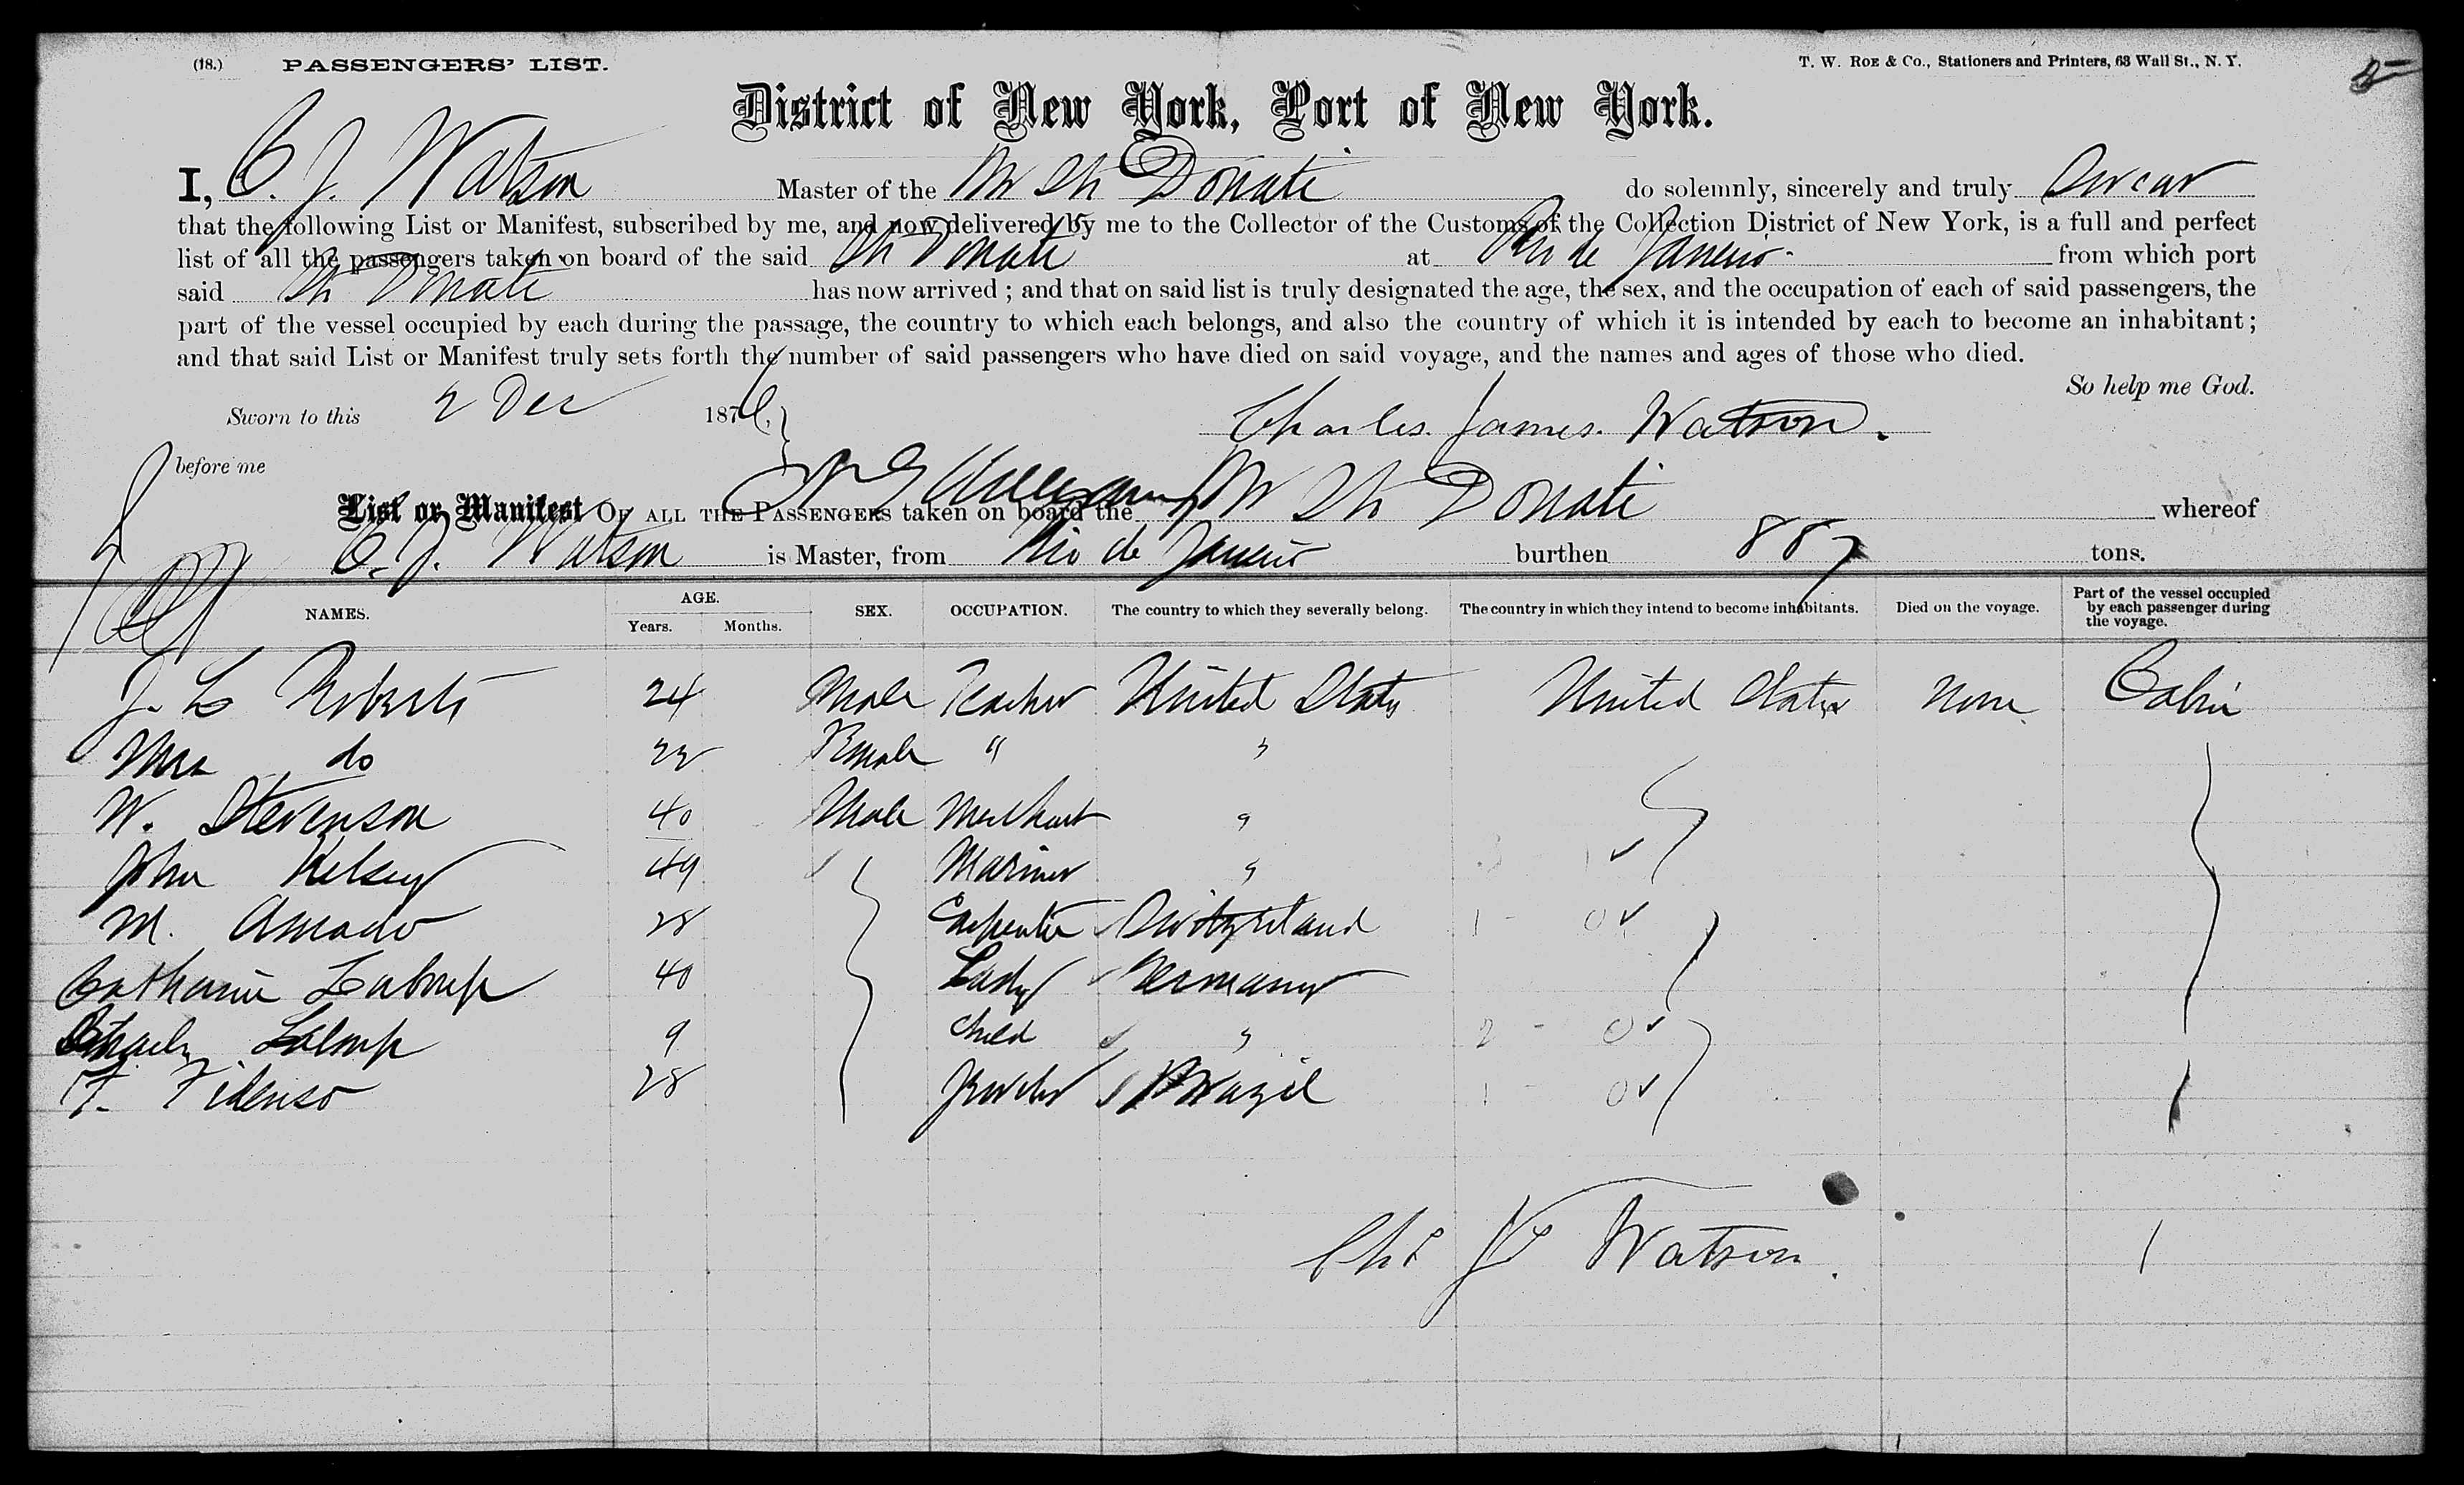 (18.) PASSENGERS' LIST. T. W. ROE & Co., Stationers and Printers, 63 Wall St., N. Y.
District of New York, Port of New York.
I, C. J. Watson Master of the Str Donati do solemnly, sincerely and truly Swear
that the following List or Manifest, subscribed by me, and now delivered by me to the Collector of the Customs of the Collection District of New York, is a full and perfect
list of all the passengers taken on board of the said Str Donati at Rio de Janeiro from which port
said Str Donati has now arrived ; and that on said list is truly designated the age, the sex, and the occupation of each of said passengers, the
part of the vessel occupied by each during the passage, the country to which each belongs, and also the country of which it is intended by each to become an inhabitant;
and that said List or Manifest truly sets forth the number of said passengers who have died on said voyage, and the names and ages of those who died.
So help me God.
Sworn to this 2 Dec 1876. Charles James Watson.
before me
List or Manifest OF ALL THE PASSENGERS taken on board the Str Donati whereof
C. J. Watson is Master, from Rio de Janeiro burthen 887 tons.
NAMES. AGE. Years. Months. SEX. OCCUPATION. The country to which they severally belong. The country in which they intend to become inhabitants. Died on the voyage. Part of the vessel occupied by each passenger during the voyage.
J. L Roberts 24 Male Teacher United States United States None Cabin
Mrs do 22 Female " "
W. Stevenson 40 Male Merchant "
John Kelsey 49 Mariner "
M. Amado 28 Carpenter Switzerland
Catharine 40 Lady Germany
9 Child "
F. Fidenso 28 Jeweler Brazil
Chs Js Watson.